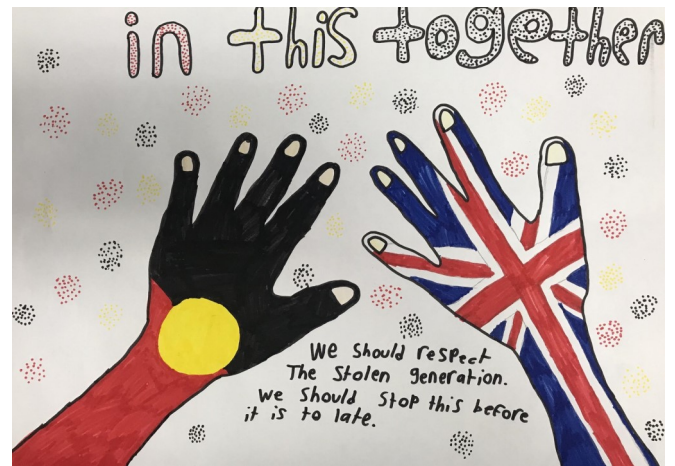 in this together
We should respect
The Stolen generation.
We Should Stop this before
it is to late.